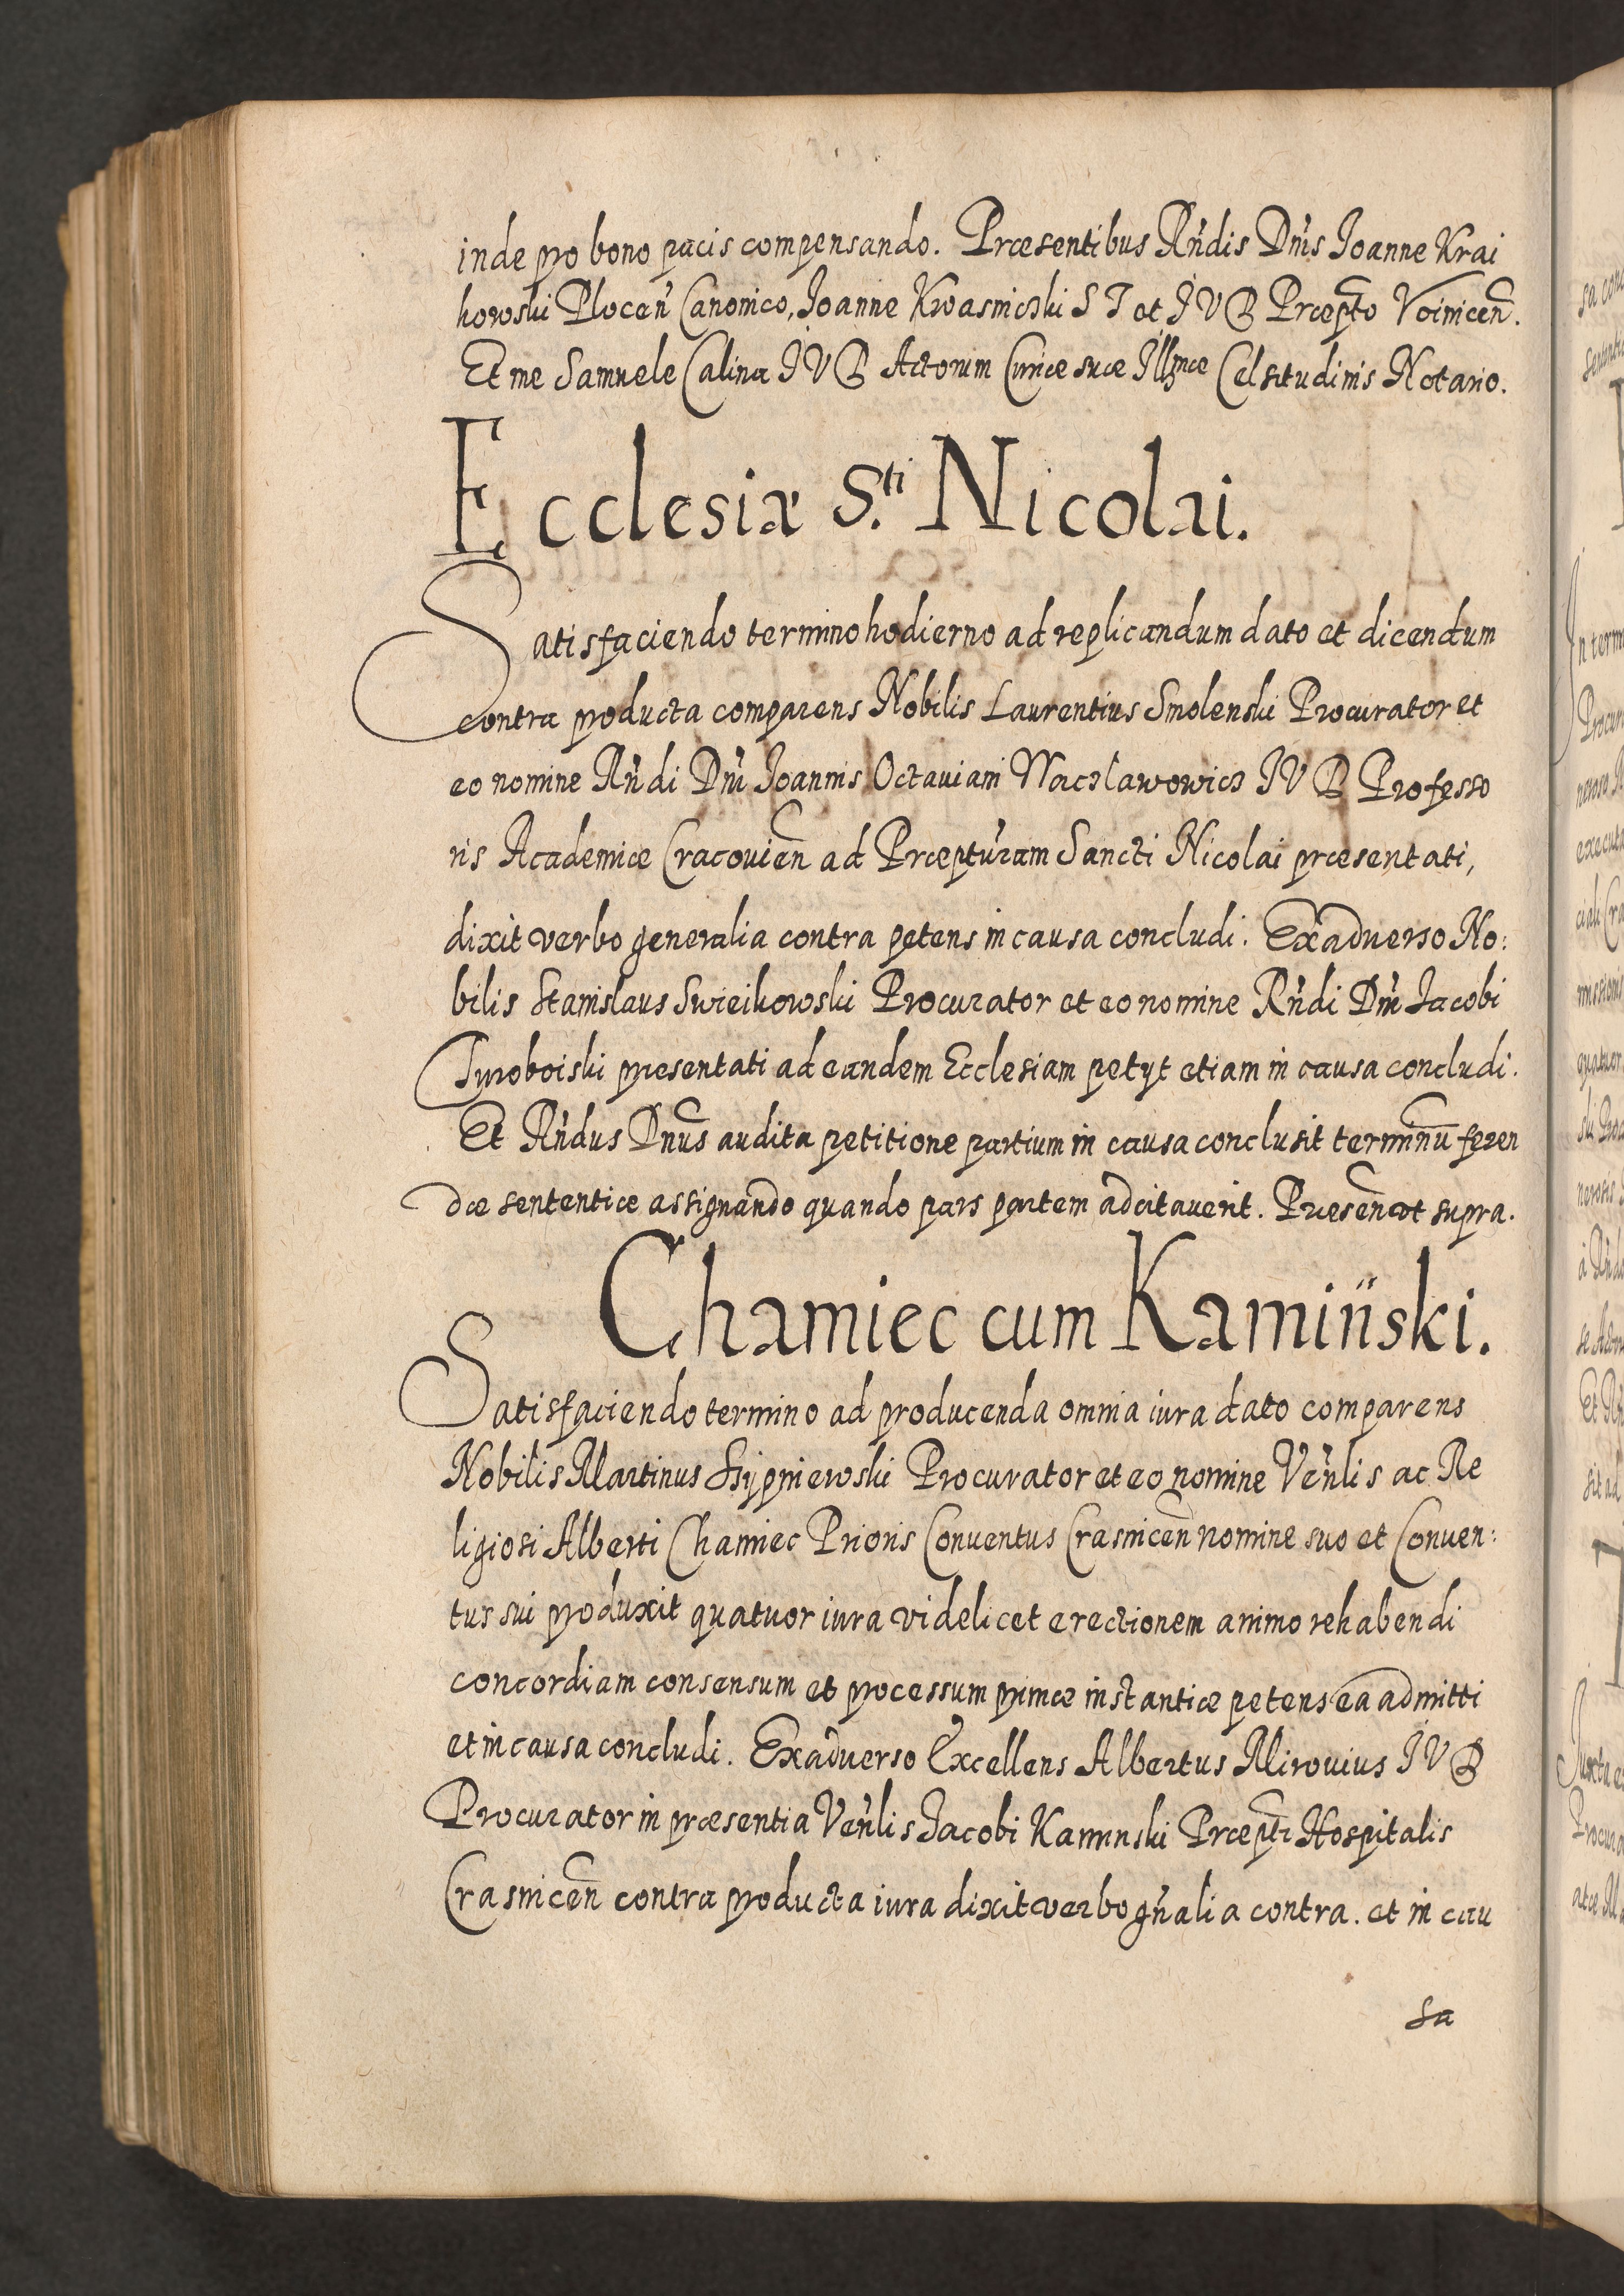 inde pro bono pacis compensando. Præsentibus Rńdis Dńis Joanne Krai
kowski Plocen̄ Canonico, Joanne Kwasnicski S T et J V D Præpt̄o Voinicen̄.
Et me Samuele Calina J V D Actorum Curiæ suæ Illm̄æ Celsitudinis Notario.
Ecclesiæ S.ti Nicolai.
Satisfaciendo termino hodierno ad replicandum dato et dicendum
contra producta comparens Nobilis Laurentius Smolenski Procurator et
eo nomine Rńdi Dńi Joannis Octauiani Wacslawowics J V D Professo
ris Academiæ Cracouien̄ ad Præpt́uram Sancti Nicolai præsentati,
dixit verbo generalia contra petens in causa concludi. Exaduerso No:
bilis Stanislaus Swieikowski Procurator et eo nomine Rńdi Dńi Jacobi
præsentati ad eandem Ecclesiam petyt etiam in causa concludi.
Et Rńdus Dnūs audita petitione partium in causa conclusit terminū feren
dæ sententiæ assignando quando pars partem adcitauerit. Præsen̄ ut supra.
Chamiec cum Kamiński.
Satisfaciendo termino ad producenda omnia iura dato comparens
Nobilis Martinus Procurator et eo nomine Veńlis ac Re
ligiosi Alberti Chamiec Prioris Conuentus Crasnicen̄ nomine suo et Conuen:
tus sui produxit quatuor iura videlicet erectionem animo rehabendi
concordiam consensum et processum primæ instantiæ petens ea admitti
et in causa concludi. Exaduerso Excellens Albertus Mirouius J V D
Procurator in præsentia Veńlis Jacobi Kaminski Præpt̄i Hospitalis
Crasnicen̄ contra producta iura dixit verbo gńalia contra. et in cau
sa